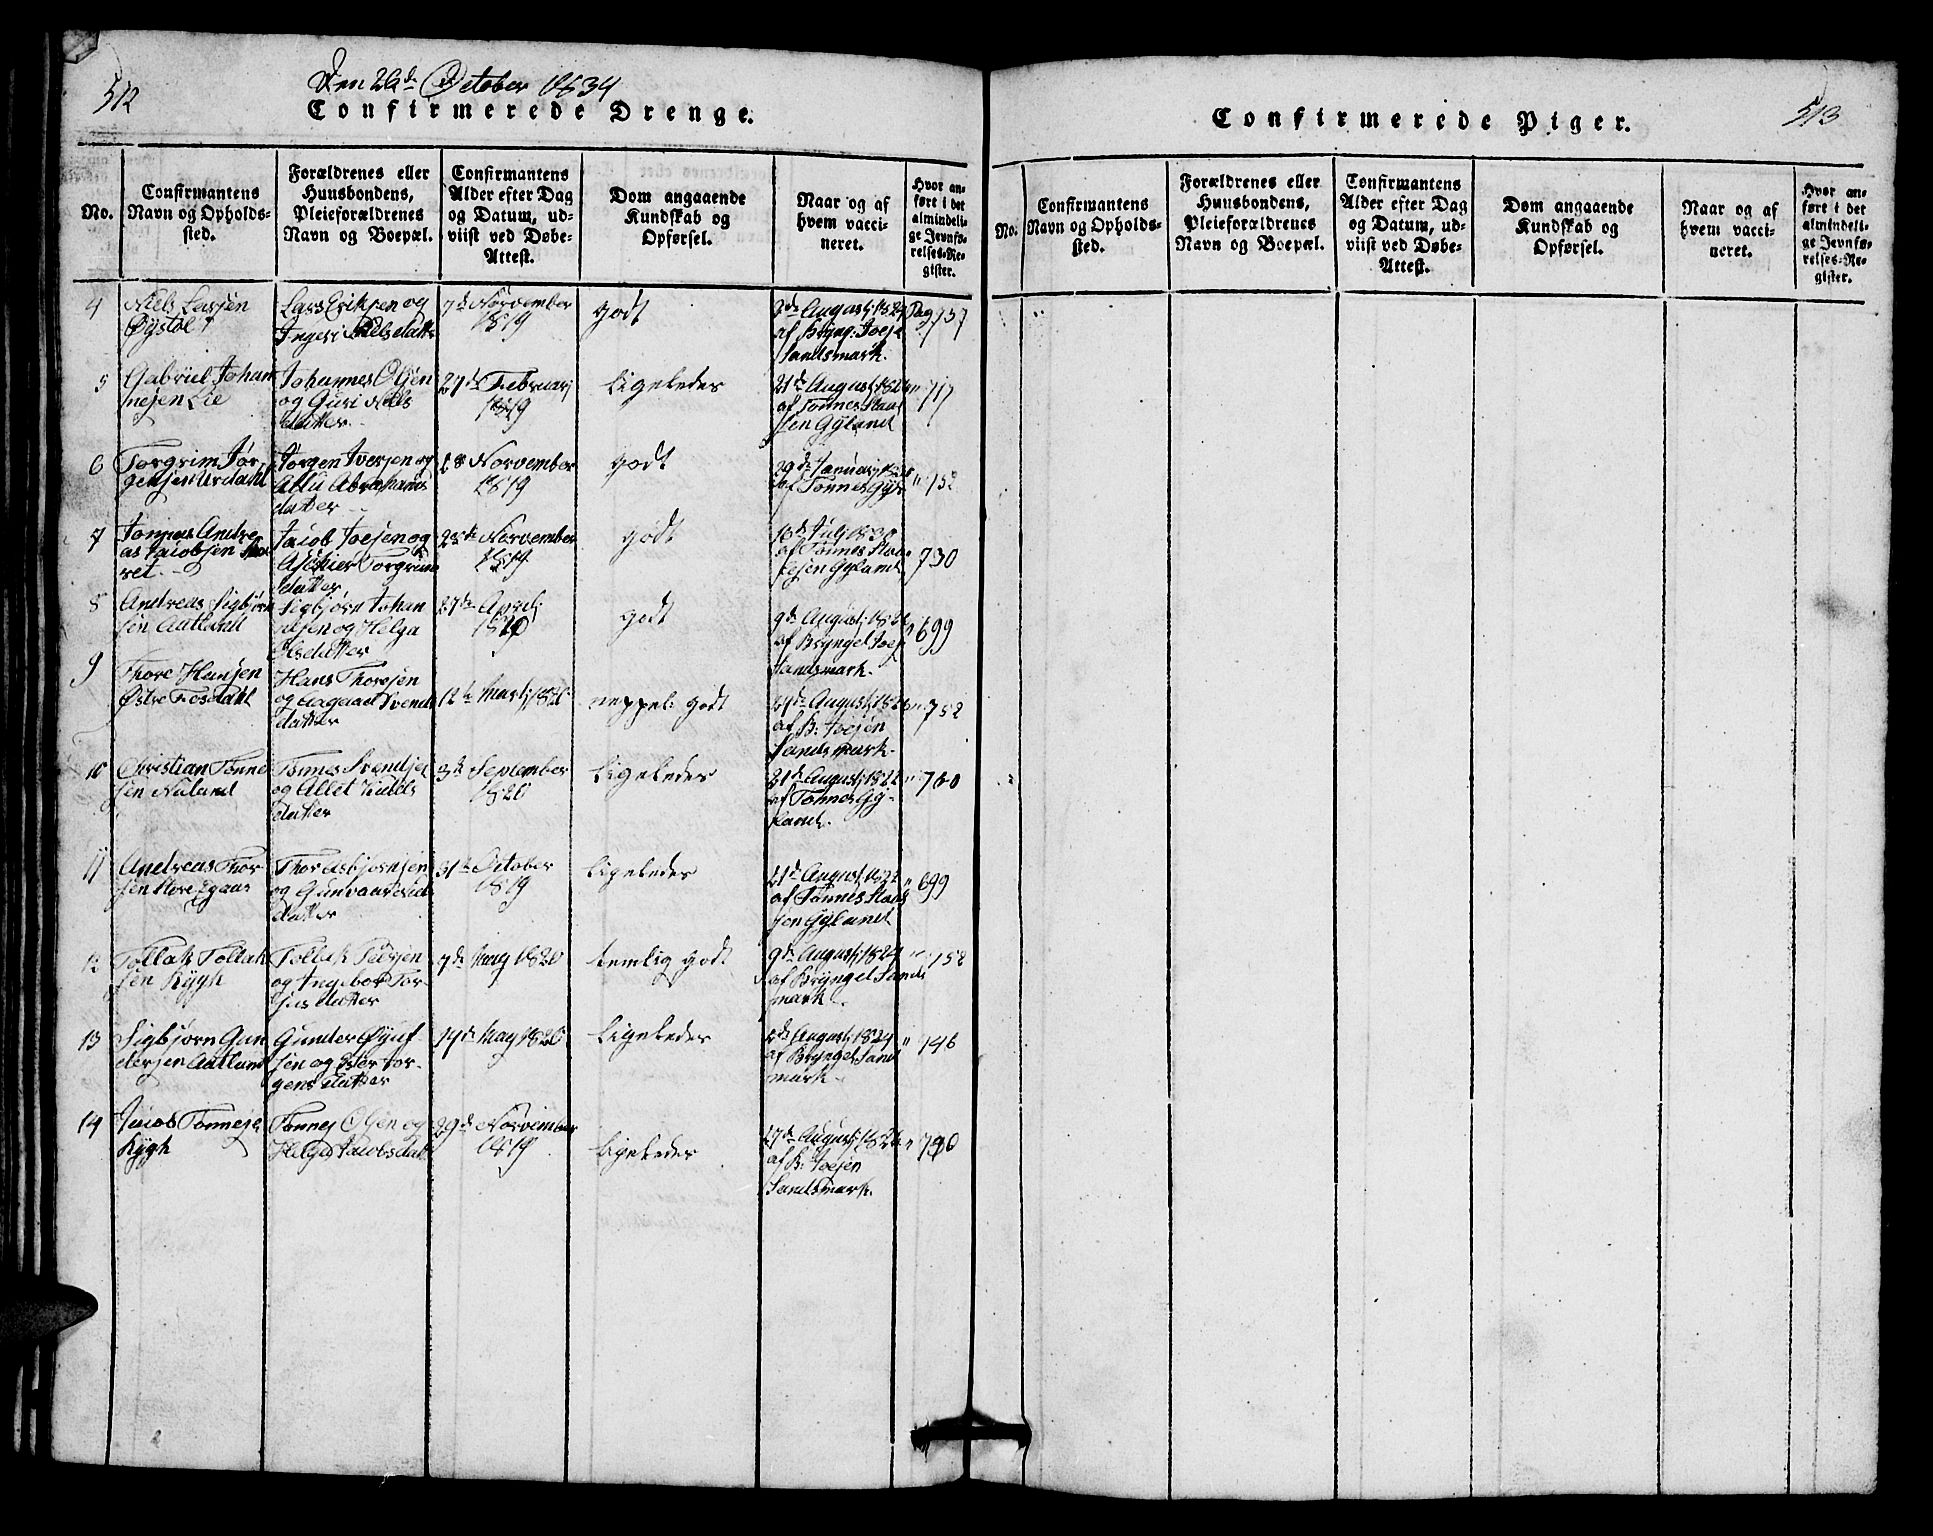 512
Den 26de October 1834
Confirmerede Drenge.
No.
Confirmantens
Navn og Opholds-
sted.
Forældrenes eller
Huusbondens,
Pleieforældrenes
Navn og Boepæl.
Confirmantens
Alder efter Dag
og Datum, ud-
viist ved Døbe-
Attest.
Dom angaaende
Kundskab og
Opførsel.
Naar og af
hvem vacci-
neret.
Hvor an-
ført i det
almindeli-
ge Jevnfø-
relses-Re-
gister.
4
Niels Larsen
Øystøl
Lars Eriksen og
Ingeri Nielsdatter
7de November
1819
godt
2de August 1824
af Bryng. Joese
Sandsmark.
Pag 737
5
Gabriel Johan
nesen Lie
Johannes Olsen
og Guri Niels
datter
27de Februarj
1819
Ligeledes
21de August
af Tønnes Staal
sen Gyland
" 717
6
Torgrim Jør
gensen Urdahl
Jørgen Iversen og
Abrahams
datter
18 November
1819
godt
29de Januarj
af Tønnes Gyl
" 752
7
Andre
as Jacobsen
ret.
Jacob Joesen og
Torgrim
datter
28de November
1819
godt
18de July 1830
af Tønnes Staa
lesen Gyland
730
8
Andreas Sigbjørn
sen Aatland
Sigbjørn Johan
nesen og Helga
datter
27de April
godt
9de August
af Bryngel Joes
Sandsmark.
" 699
9
Thore Hansen
Østre Fosdahl
Hans Thoresen
og Aagaad Svends
datter
12te Martj 1820
neppe godt
27de August
af B. Joesen
Sandsmark.
" 752
10
Christian Tønne
sen Naland
Tønnes Svendsen
og Allet Niels
datter
3de September
1820
Ligeledes
21de August
af Tønnes Gy-
land.
" 760
11
Andreas Thor
sen Store Egaas
Thor Asbjørnsen
og Gunvaar
datter
31te October
1819
Ligeledes
21de August
af Tønnes Staal
sen Gyland
" 699
12
Tollak Tollak
sen Rygh
Tollak
og Ingebor Tor-
jus datter
7de May 1820
temlig godt
9de August 1824
af Bryngel Sands
mark
" 752
13
Sigbjørn Gun
dersen Aatland
Gunder Øyuf-
sen og Ester Jør-
gens datter
14de May 1820
Ligeledes
2de August 1824
af Bryngel Sands
mark
" 746
14
Jacob Tønnese
Rygh
Tønnes Olsen og
Helga Jacobsdat
29de November
1819
Ligeledes
27de August
af B. Joesen
Sandsmark.
" 740
513
Confirmerede Piger.
No.
Confirmantens
Navn og Opholds-
sted.
Forældrenes eller
Huusbondens,
Pleieforældrenes
Navn og Boepæl.
Confirmantens
Alder efter Dag
og Datum, ud-
viist ved Døbe-
Attest.
Dom angaaende
Kundskab og
Opførsel.
Naar og af
hvem vacci-
neret.
Hvor an-
ført i det
almindeli-
ge Jevnfø-
relses-Re-
gister.